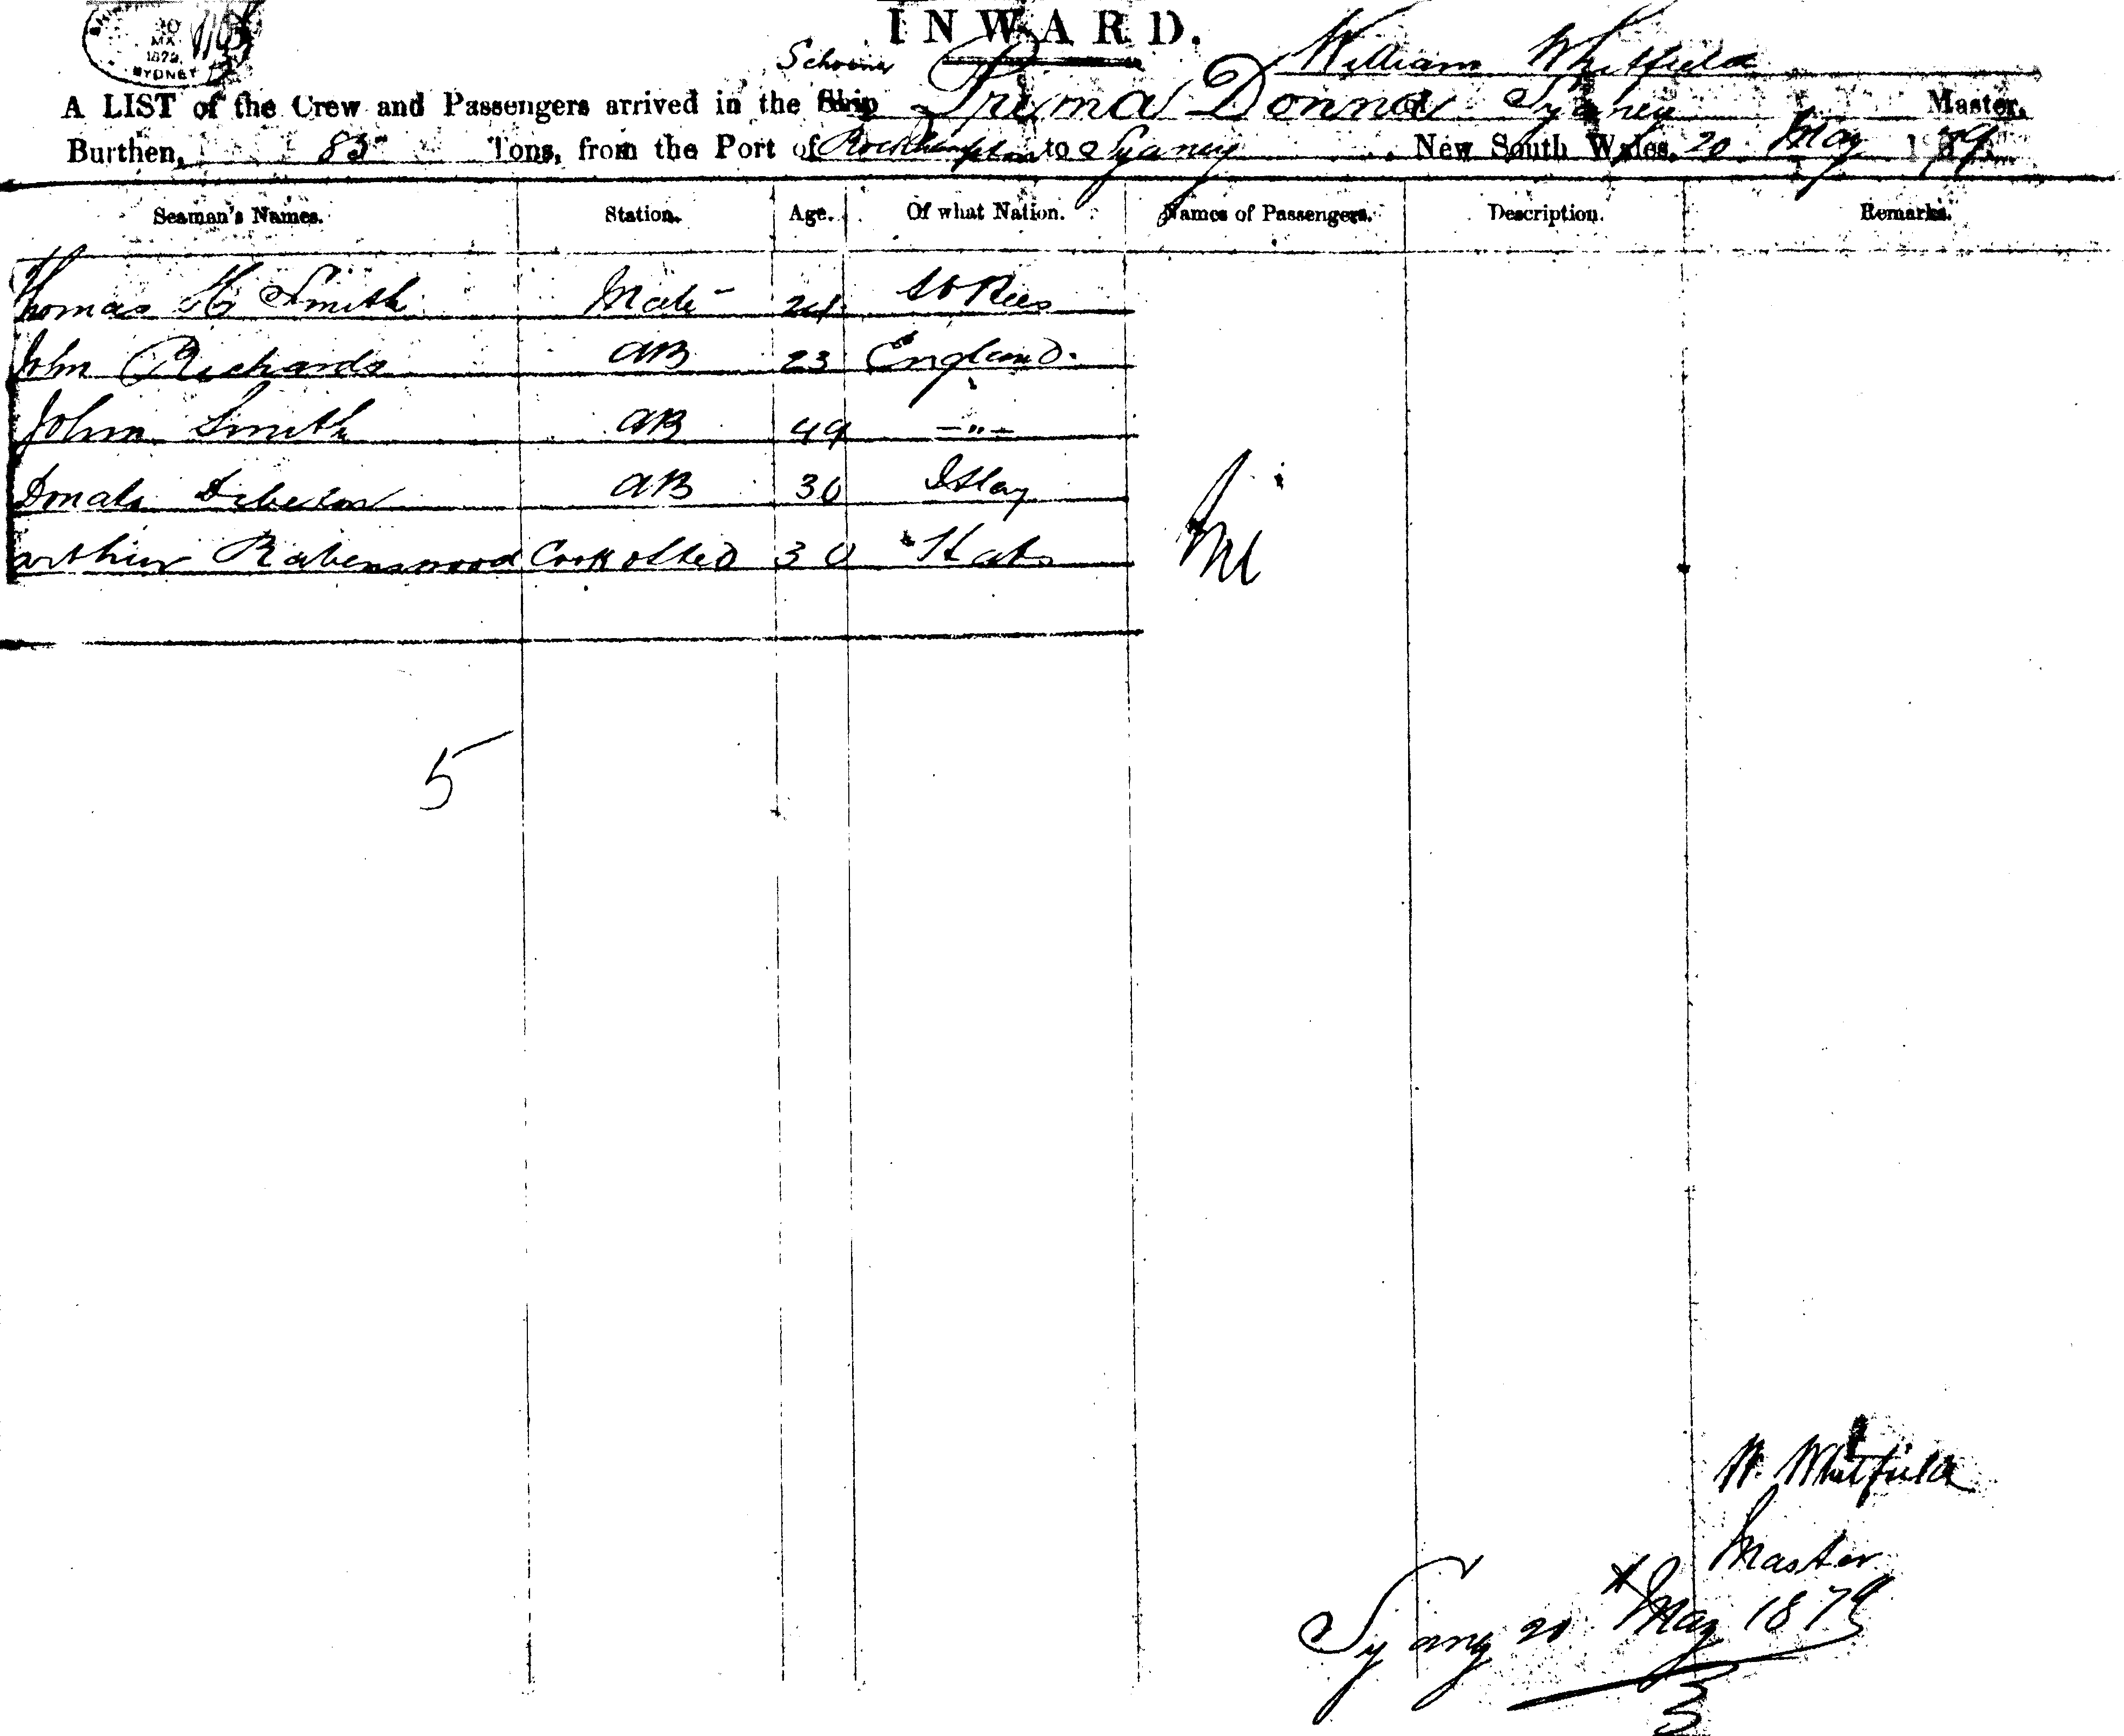 INWARD.
Schooner William Whitfield
A LIST of the Crew and Passengers arrived in the Ship Prima Donna of Sydney Master,
Burthen, 83 Tons, from the Port of Rockhampton to Sydney, New South Wales, 20 May 1879
Seaman's Names. Station. Age. Of what Nation. Names of Passengers. Description. Remarks.
Thomas H Smith Mate 24
John Richards AB 23 England.
John Smith AB 49 –"–
AB 30 Islay
Arthur Rabenswood Cook & Sted 30
5
W. Whitfield
Master
Sydney 20 May 1879